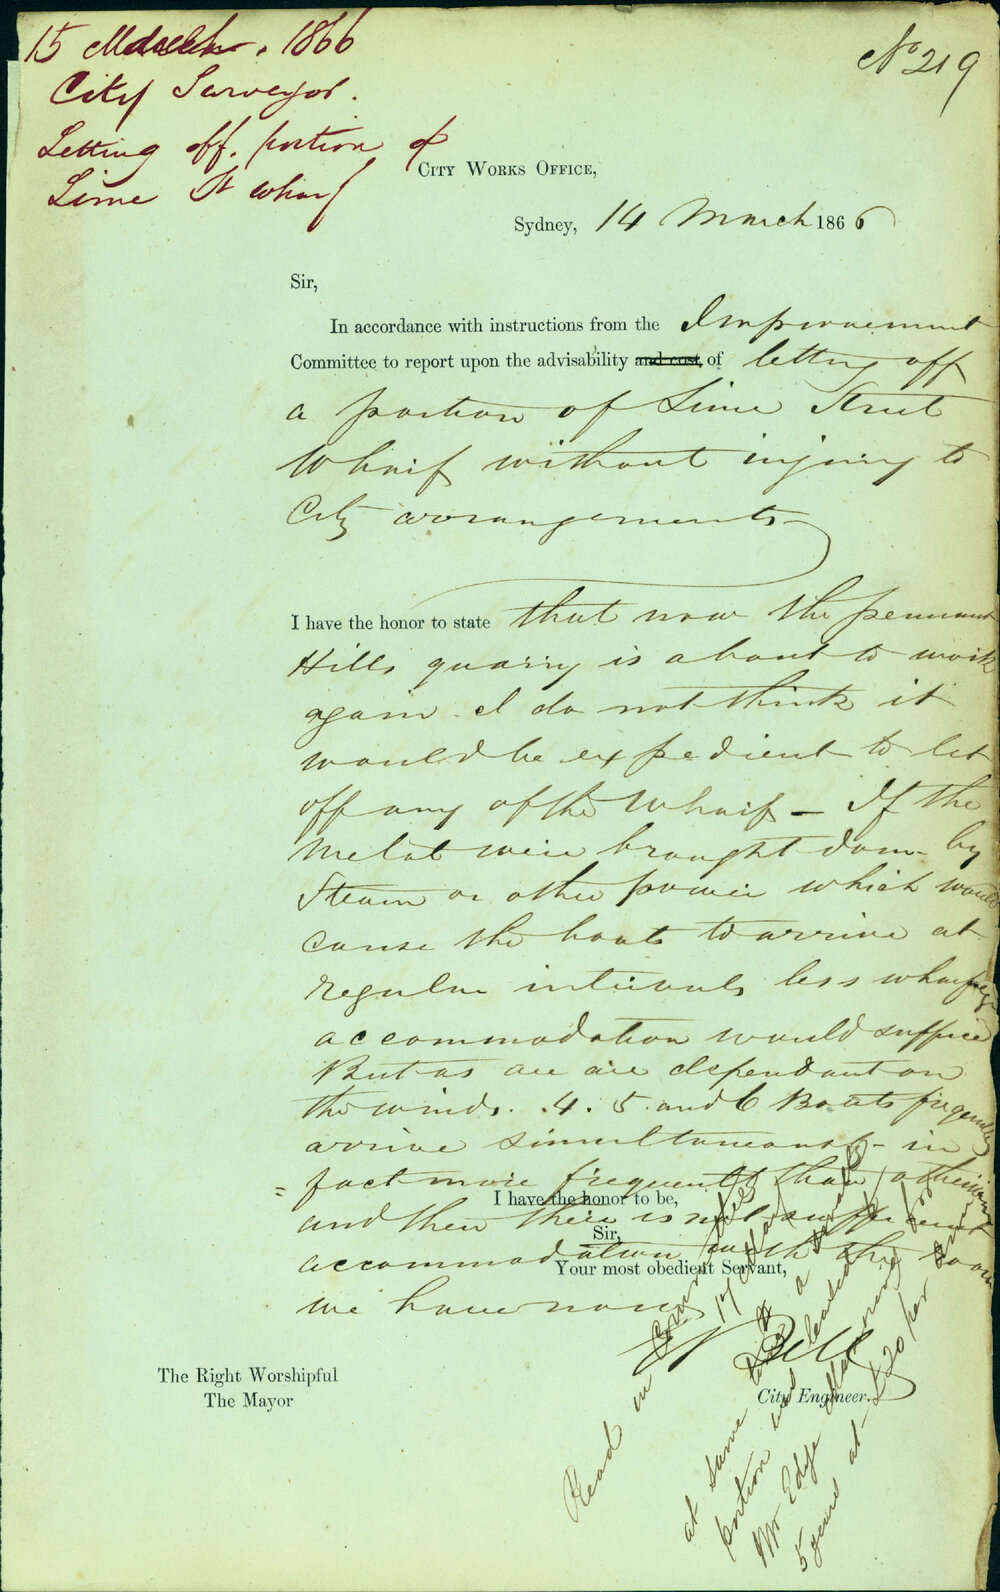 15 March. 1866
City Surveyor.
Letting off. portion of
Lime St Wharf
No 219
City Works Office,
Sydney, 14 March 1866
Sir,
In accordance with instructions from the Improvement
Committee to report upon the advisability and cost, of letting off
a portion of Lime Street
Wharf without injury to
City arrangements
I have the honor to state that now the pennant
Hills quarry is about to work
again I do not think it
would be expedient to let
off any of the Wharf – If the
Metal were brought down by
Steam or other power which would
cause the boats to arrive at
regular intervals less wharfage
accommodation would suffice
But as we are dependant on
the winds. .4. 5. and 6 Boats frequently
arrive simultaneously – in
fact more frequently than otherwise
and then there is not sufficient
accommodation with the room
we have now
I have the honor to be,
Sir,
Your most obedient Servant,
E Bell
City Engineer.
The Right Worshipful
The Mayor
Read in
at same time a
portion was leased for
Mr Edge
5 years at £20 per